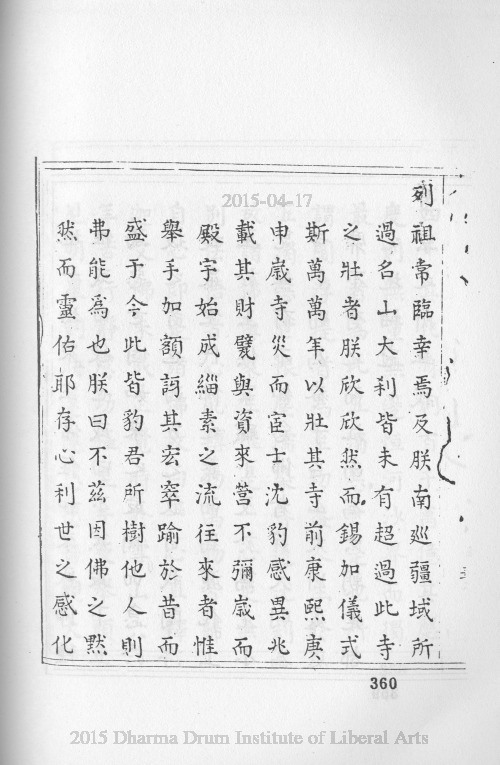 列祖常臨幸焉及朕南巡疆域所
過名山大剎皆未有超過此寺
之壯者朕欣欣然而錫加儀式
斯萬萬年以壯其寺前康熙庚
申歲寺災而宦士沈豹感異兆
載其財躄與資來營不彌歲而
殿宇始成緇素之流往來者惟
舉手加額訶其宏窣踰於昔而
盛于今此皆豹君所樹他人則
弗能為也朕曰不茲因佛之默
然而靈佑耶存心利世之感化
360
2015-04-17
2015 Dharma Drum Institute of Liberal Arts